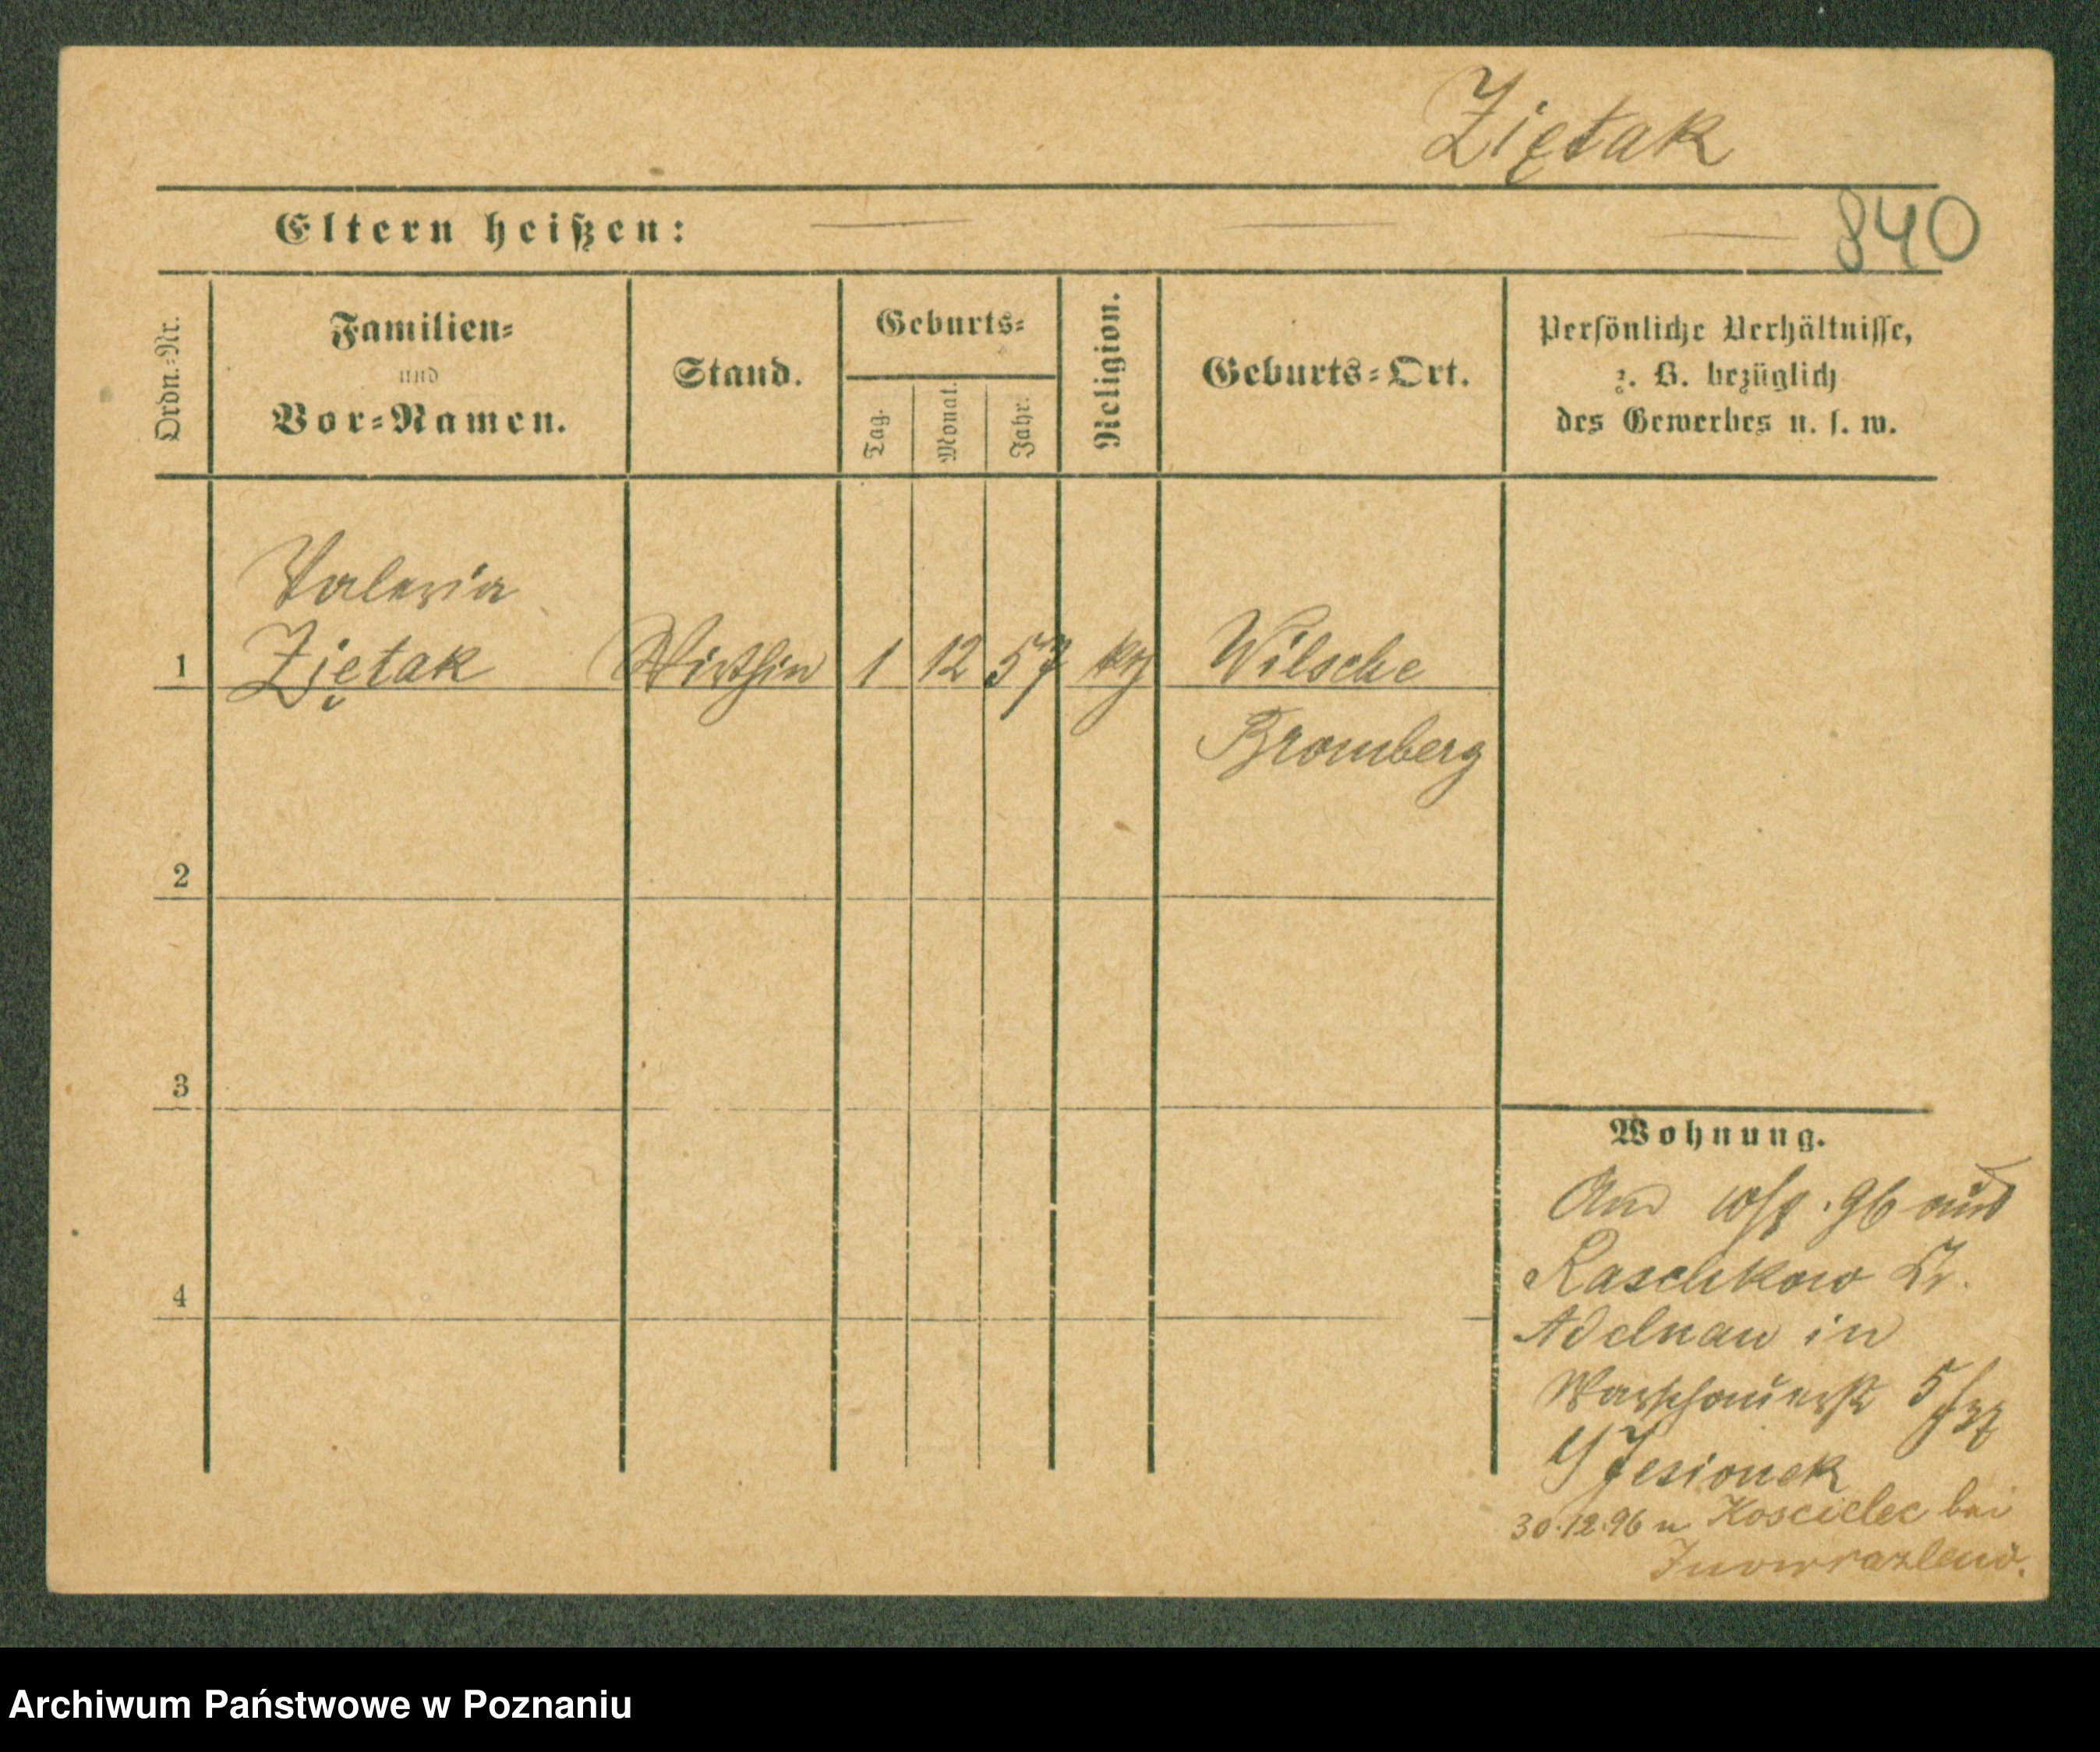 Ziętak
840
Eltern heißen:
Ordn.=Nr.
Familien=
und
Vor=Namen.
Stand.
Geburts=
Tag.
Monat.
Jahr.
Religion.
Geburts=Ort.
Persönliche Verhältnisse,
z. B. bezüglich
des Gewerbes u. s. w.
Valeria
1 Ziętak Wirthin 1 12 57 Wilsche
Bromberg
2
3
4
Wohnung.
10/9. 96 aus
Raschkow Kr.
Adelnau in
Warschauerstr 5/
b/ Jesionek
30.12.96 n Koscielec bei
Inowrazlaw.
Archiwum Państwowe w Poznaniu